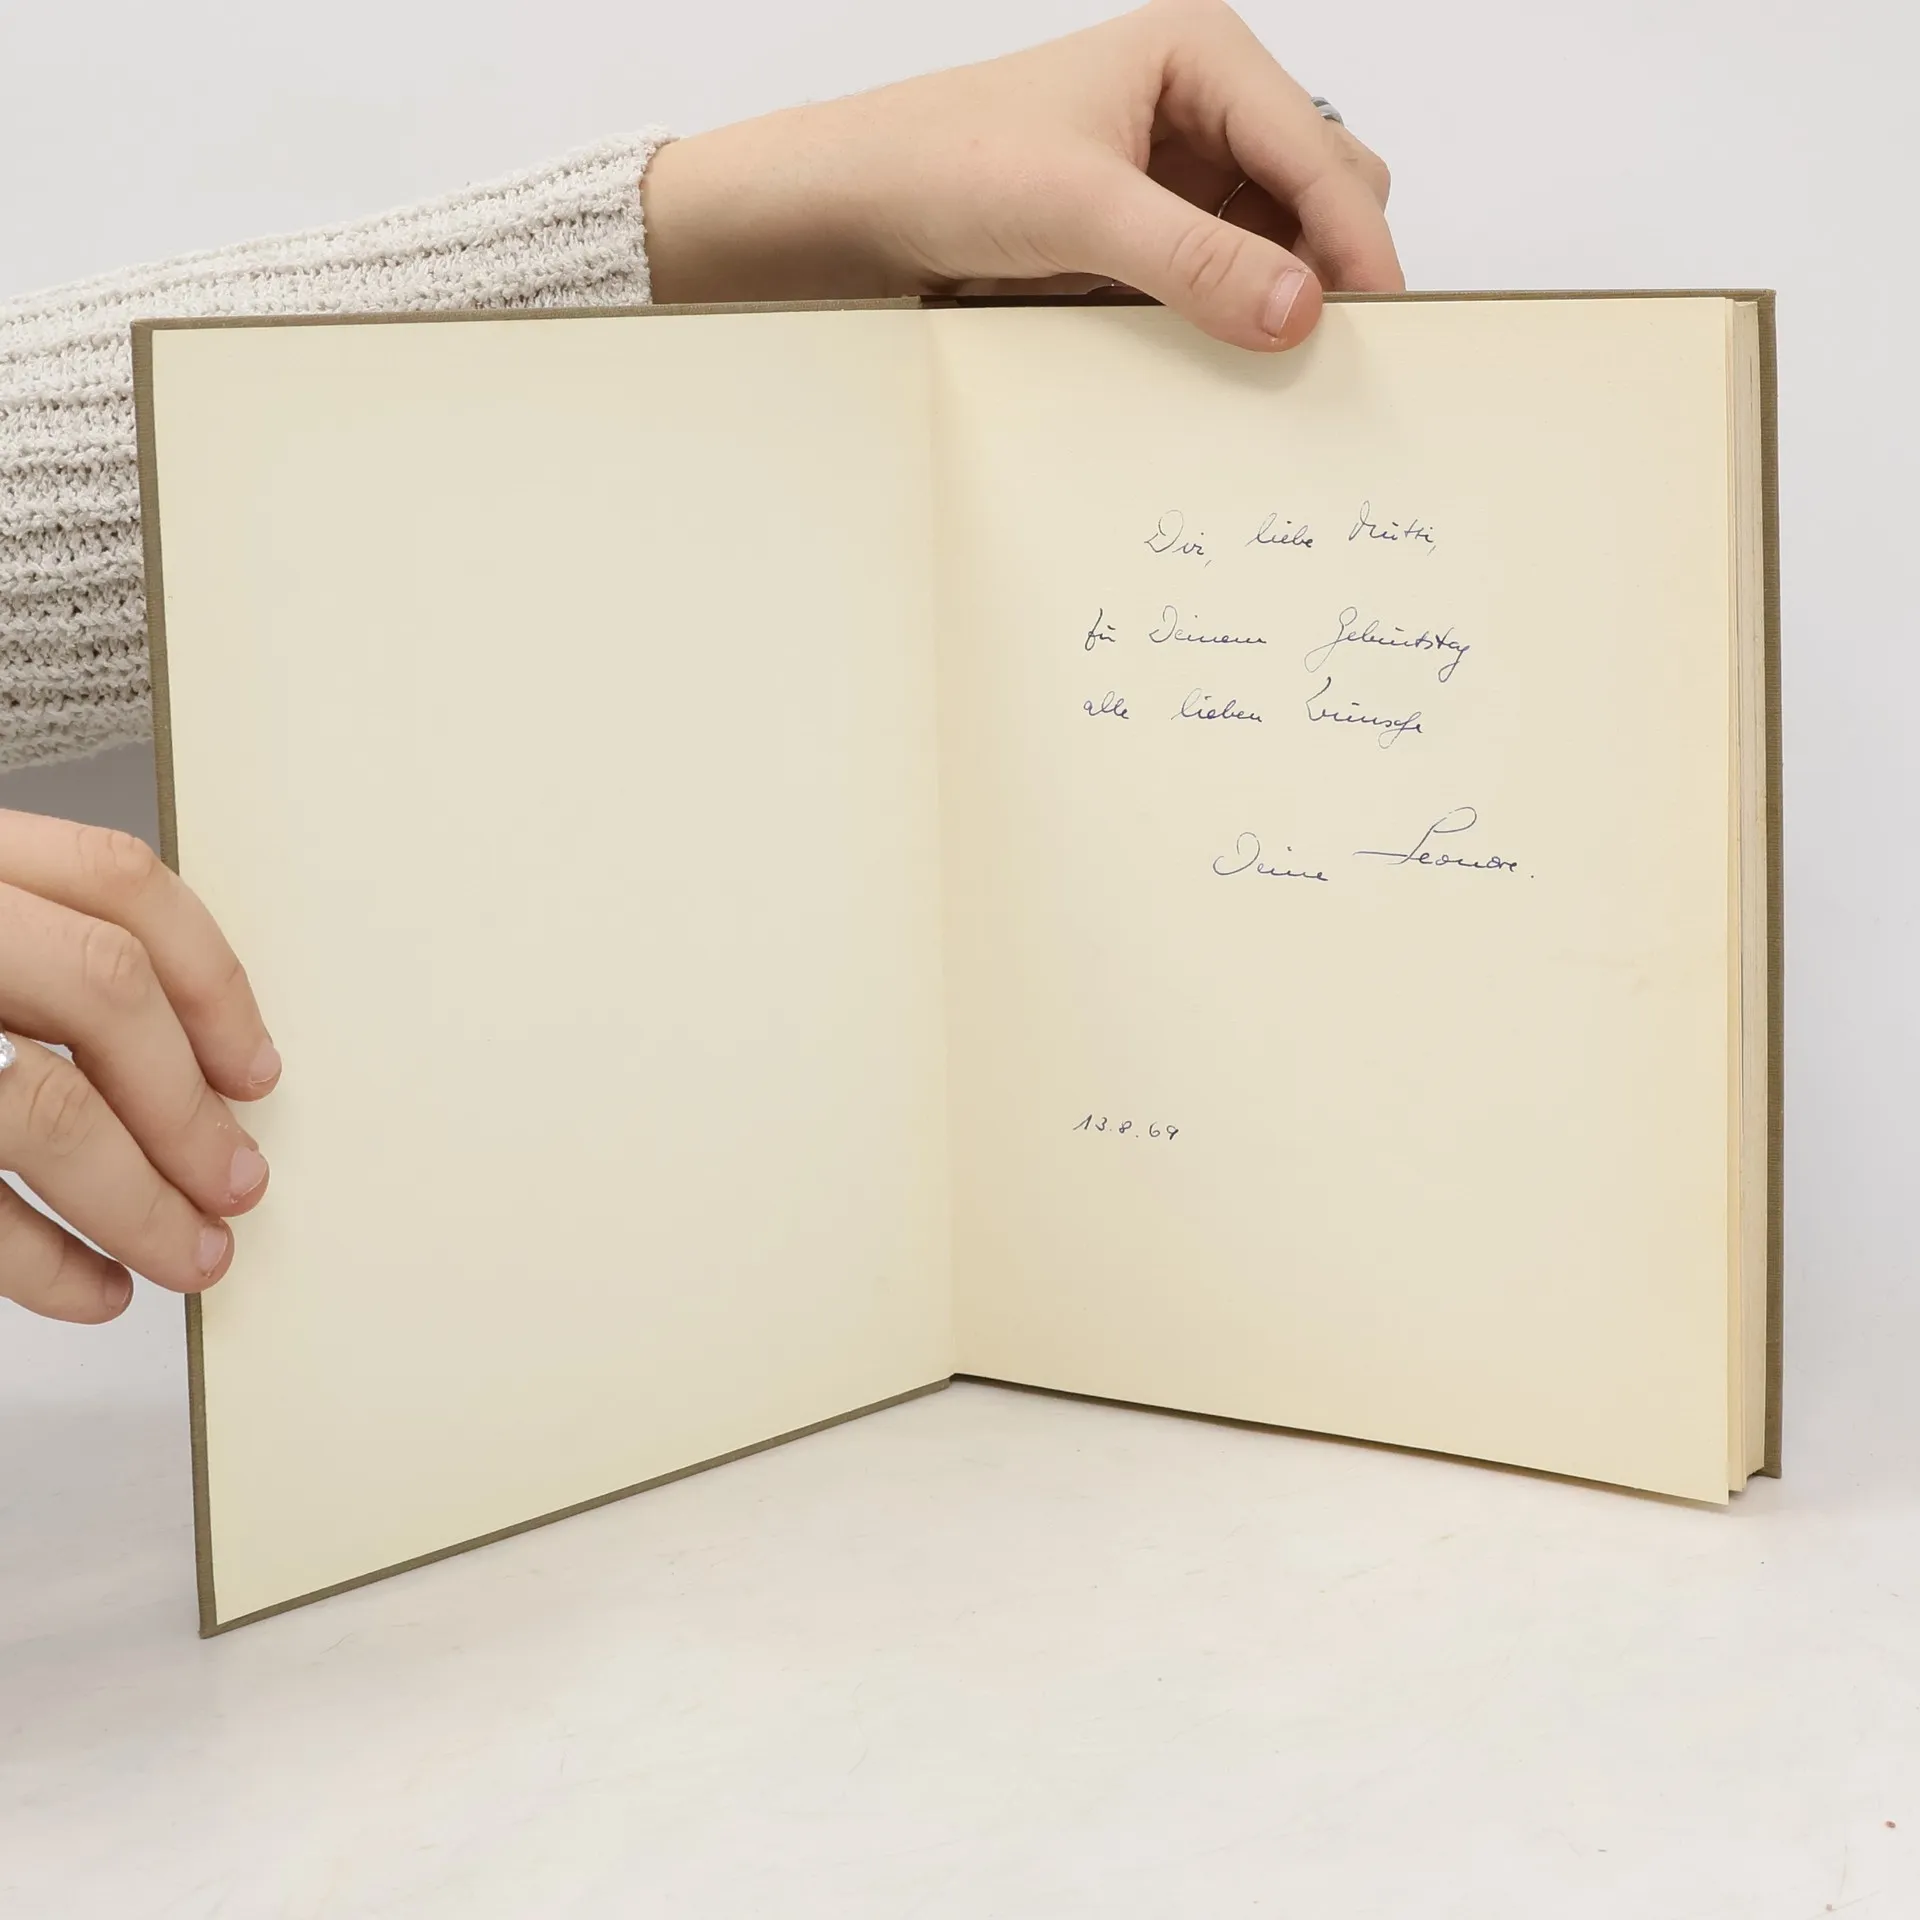 Dir, liebe Mutti,
für Deinem Geburtstag
alle lieben Wünsche
Deine Leonore.
13.8.69